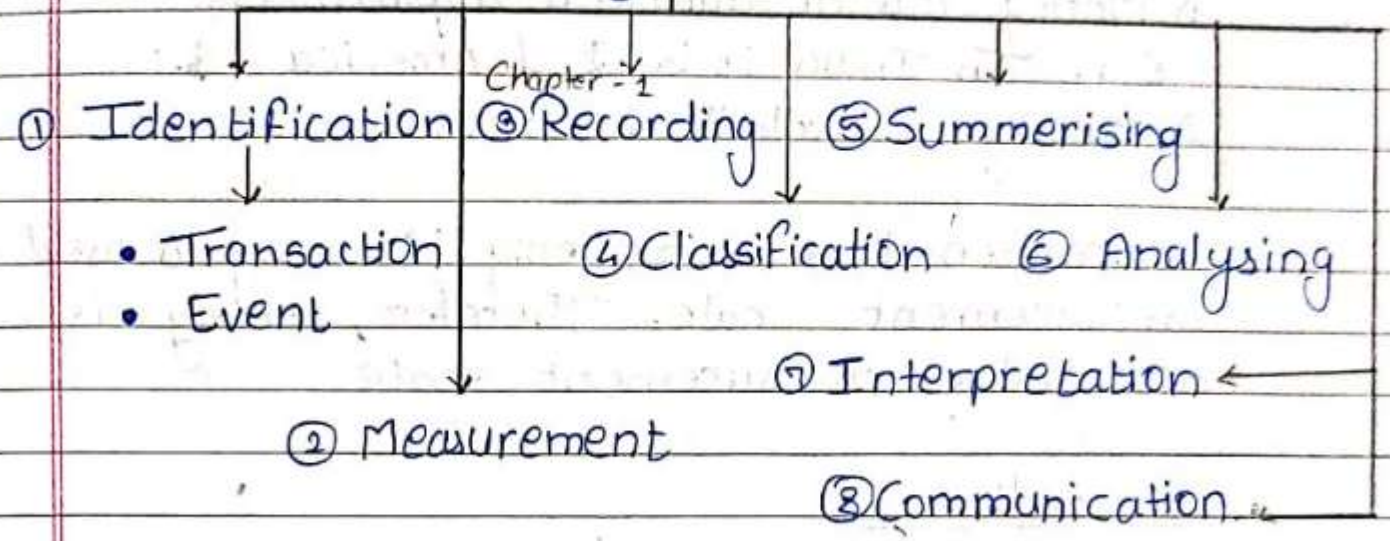 Chapter - 1
① Identification ③ Recording ⑤ Summerising
• Transaction ④ Classification ⑥ Analysing
• Event
⑦ Interpretation
② Measurement
⑧ Communication